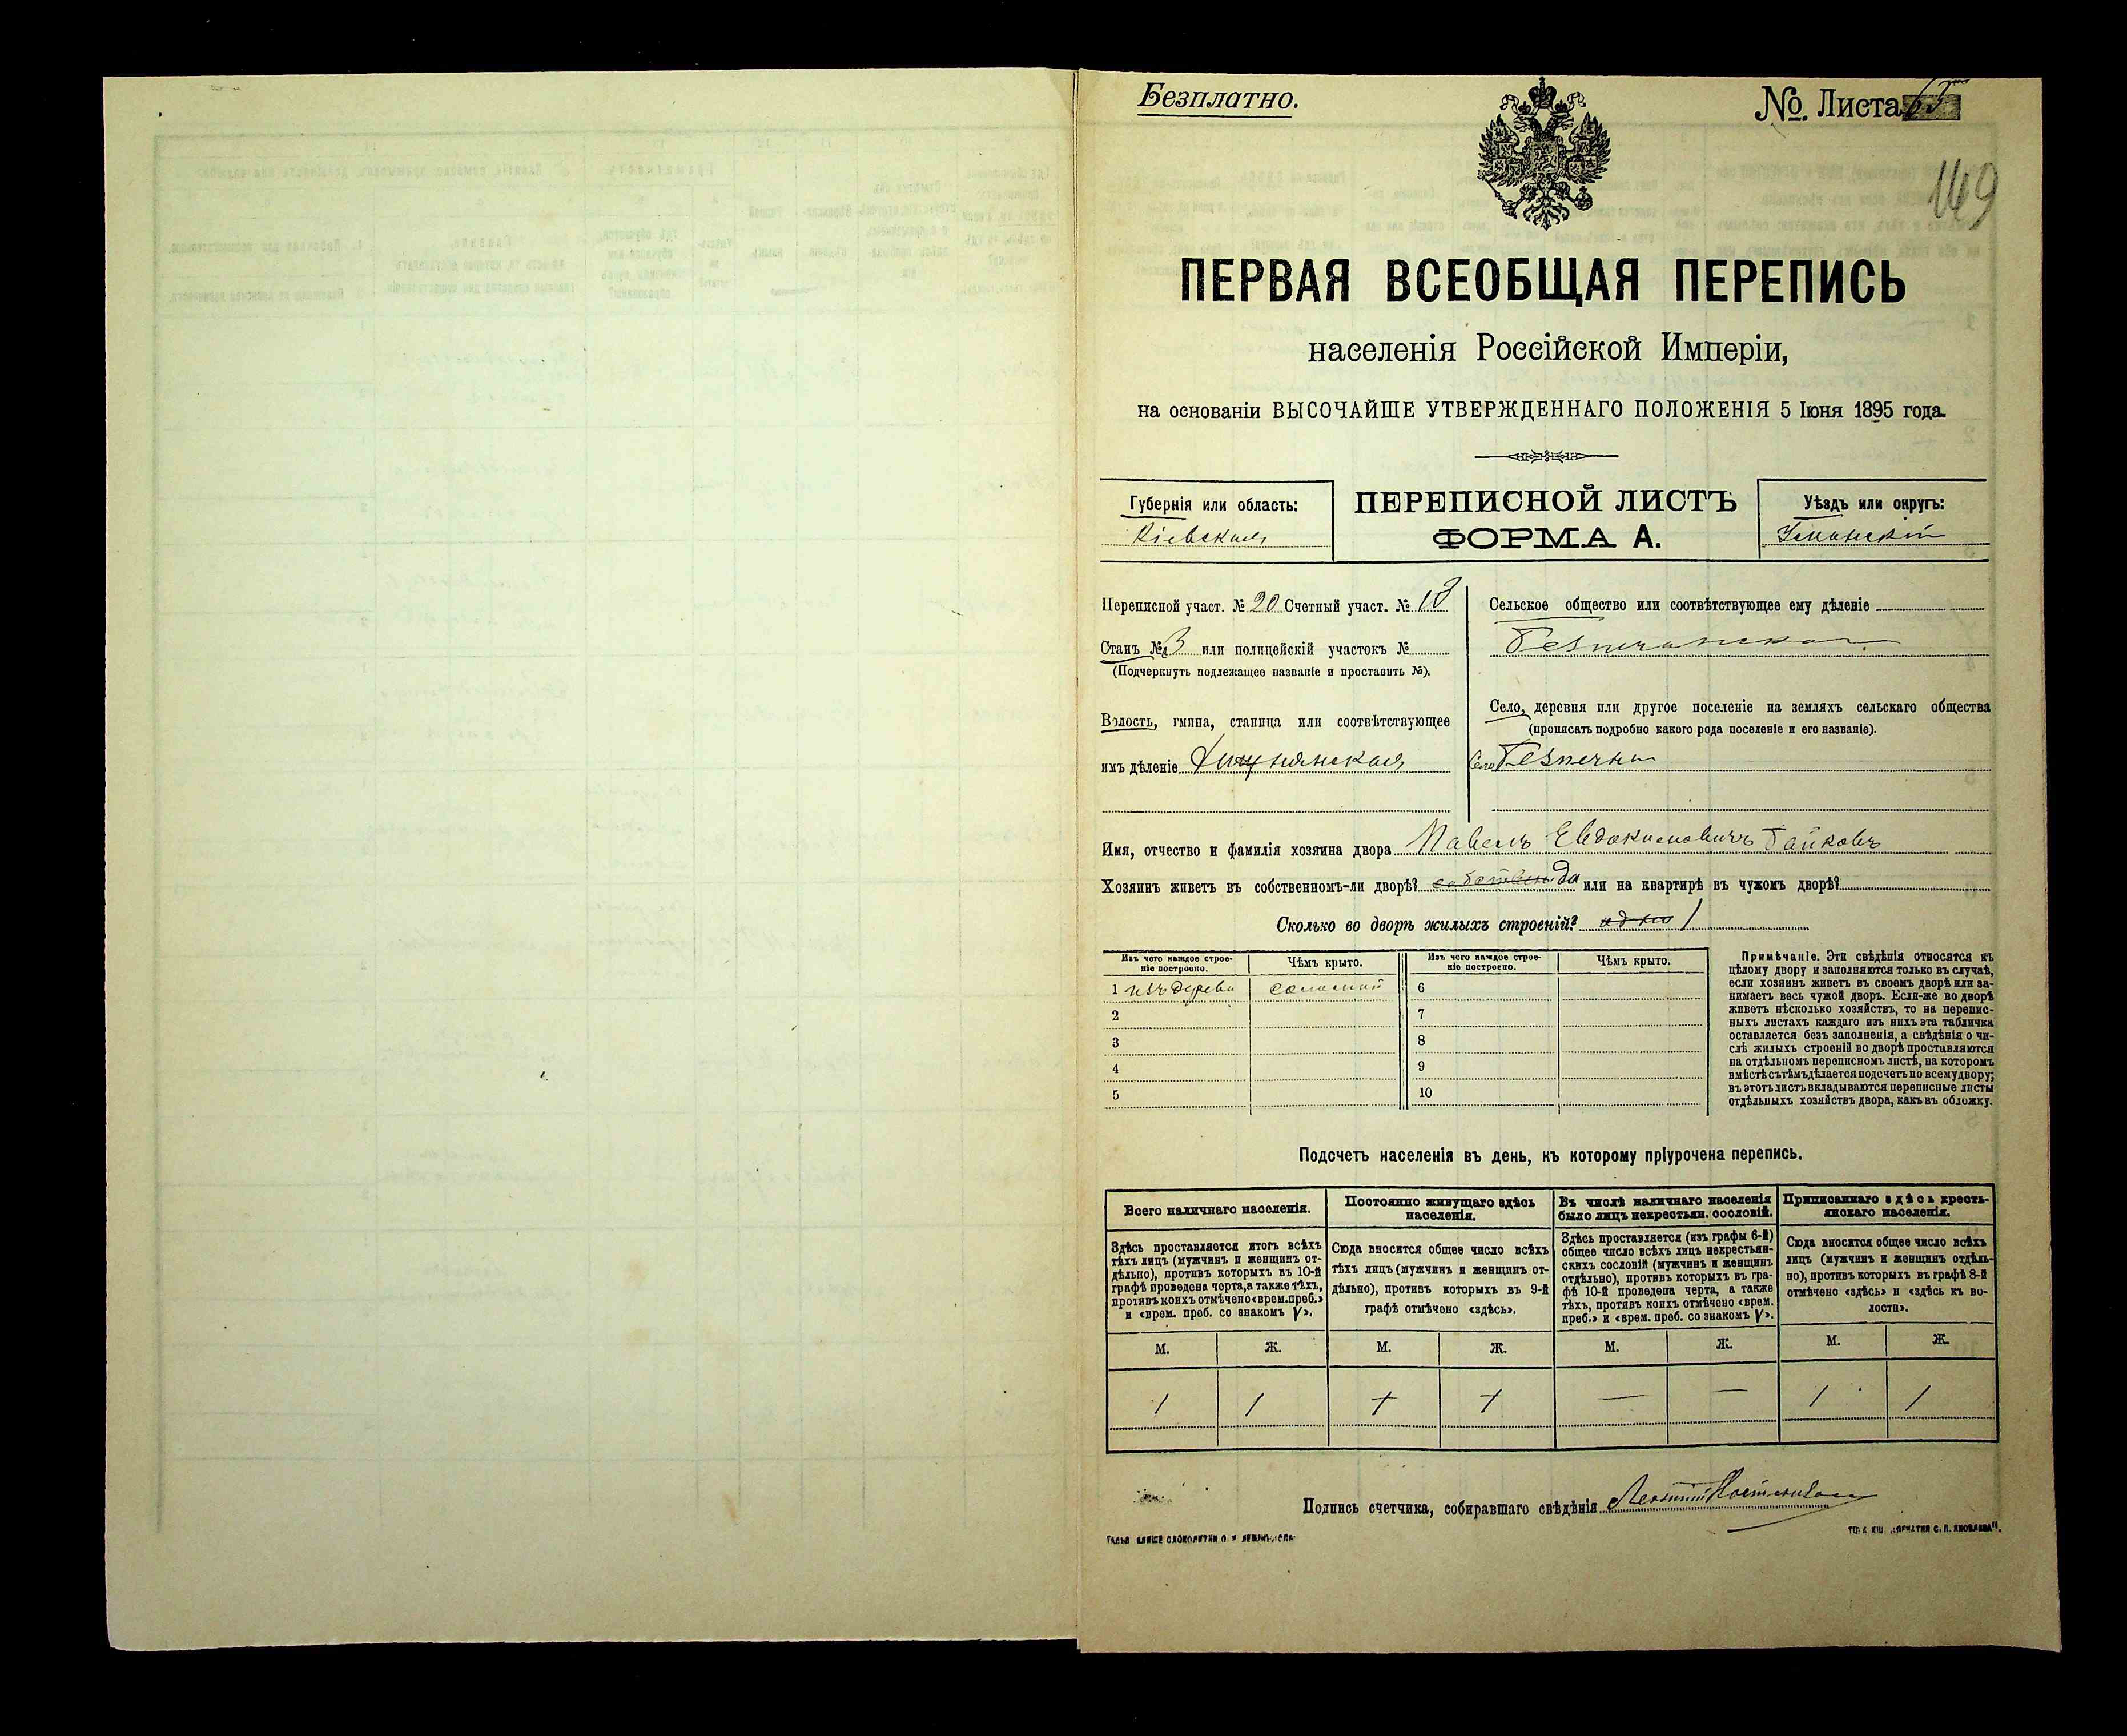 Безплатно.
№. Листа 65
149
ПЕРВАЯ ВСЕОБЩАЯ ПЕРЕПИСЬ
населенія Россійской Имперіи,
на основаніи ВЫСОЧАЙШЕ УТВЕРЖДЕННАГО ПОЛОЖЕНІЯ 5 Іюня 1895 года.
Губернія или область:
Кіевская
ПЕРЕПИСНОЙ ЛИСТЪ
ФОРМА А.
Уѣздъ или округъ:
Уманскій
Переписной участ. № 20 Счетный участ. № 13
Станъ № 3 или полицейскій участокъ №
(Подчеркнуть подлежащее названіе и проставить №).
Волость, гмина, станица или соотвѣтствующее
имъ дѣленіе
Сельское общество или соотвѣтствующее ему дѣленіе
Село, деревня или другое поселеніе на земляхъ сельскаго общества
(прописать подробно какого рода поселеніе и его названіе).
Село
Имя, отчество и фамилія хозяина двора Павелъ Евдокимовичъ Гайковъ
Хозяинъ живетъ въ собственномъ-ли дворѣ? да или на квартирѣ въ чужомъ дворѣ?
Сколько во дворѣ жилыхъ строеній? одно 1
Изъ чего каждое строе-
ніе построено.
Чѣмъ крыто.
Изъ чего каждое строе-
ніе построено.
Чѣмъ крыто.
1 изъ дерева соломой 6
2 7
3 8
4 9
5 10
Примѣчаніе. Эти свѣдѣнія относятся къ
цѣлому двору и заполняются только въ случаѣ,
если хозяинъ живетъ въ своемъ дворѣ или за-
нимаетъ весь чужой дворъ. Если-же во дворѣ
живетъ нѣсколько хозяйствъ, то на перепис-
ныхъ листахъ каждаго изъ нихъ эта табличка
оставляется безъ заполненія, а свѣдѣнія о чи-
слѣ жилыхъ строеній во дворѣ проставляются
на отдѣльномъ переписномъ листѣ, на которомъ
вмѣстѣ съ тѣмъ дѣлается подсчетъ по всему двору;
въ этотъ листъ вкладываются переписные листы
отдѣльныхъ хозяйствъ двора, какъ въ обложку.
Подсчетъ населенія въ день, къ которому пріурочена перепись.
Всего наличнаго населенія.
Здѣсь проставляется итогъ всѣхъ
тѣхъ лицъ (мужчинъ и женщинъ от-
дѣльно), противъ которыхъ въ 10-й
графѣ проведена черта, а также тѣхъ,
противъ коихъ отмѣчено «врем. преб.»
и «врем. преб. со знакомъ V».
Постоянно живущаго здѣсь
населенія.
Сюда вносится общее число всѣхъ
тѣхъ лицъ (мужчинъ и женщинъ от-
дѣльно), противъ которыхъ въ 9-й
графѣ отмѣчено «здѣсь».
Въ числѣ наличнаго населенія
было лицъ некрестьян. сословій.
Здѣсь проставляется (изъ графы 6-й)
общее число всѣхъ лицъ некрестьян-
скихъ сословій (мужчинъ и женщинъ
отдѣльно), противъ которыхъ въ гра-
фѣ 10-й проведена черта, а также
тѣхъ, противъ коихъ отмѣчено «врем.
преб.» и «врем. преб. со знакомъ V».
Приписаннаго здѣсь кресть-
янскаго населенія.
Сюда вносится общее число всѣхъ
лицъ (мужчинъ и женщинъ отдѣль-
но), противъ которыхъ въ графѣ 8-й
отмѣчено «здѣсь» и «здѣсь къ во-
лости».
М. Ж. М. Ж. М. Ж. М. Ж.
1 1 1 1 — — 1 1
Подпись счетчика, собиравшаго свѣдѣнія